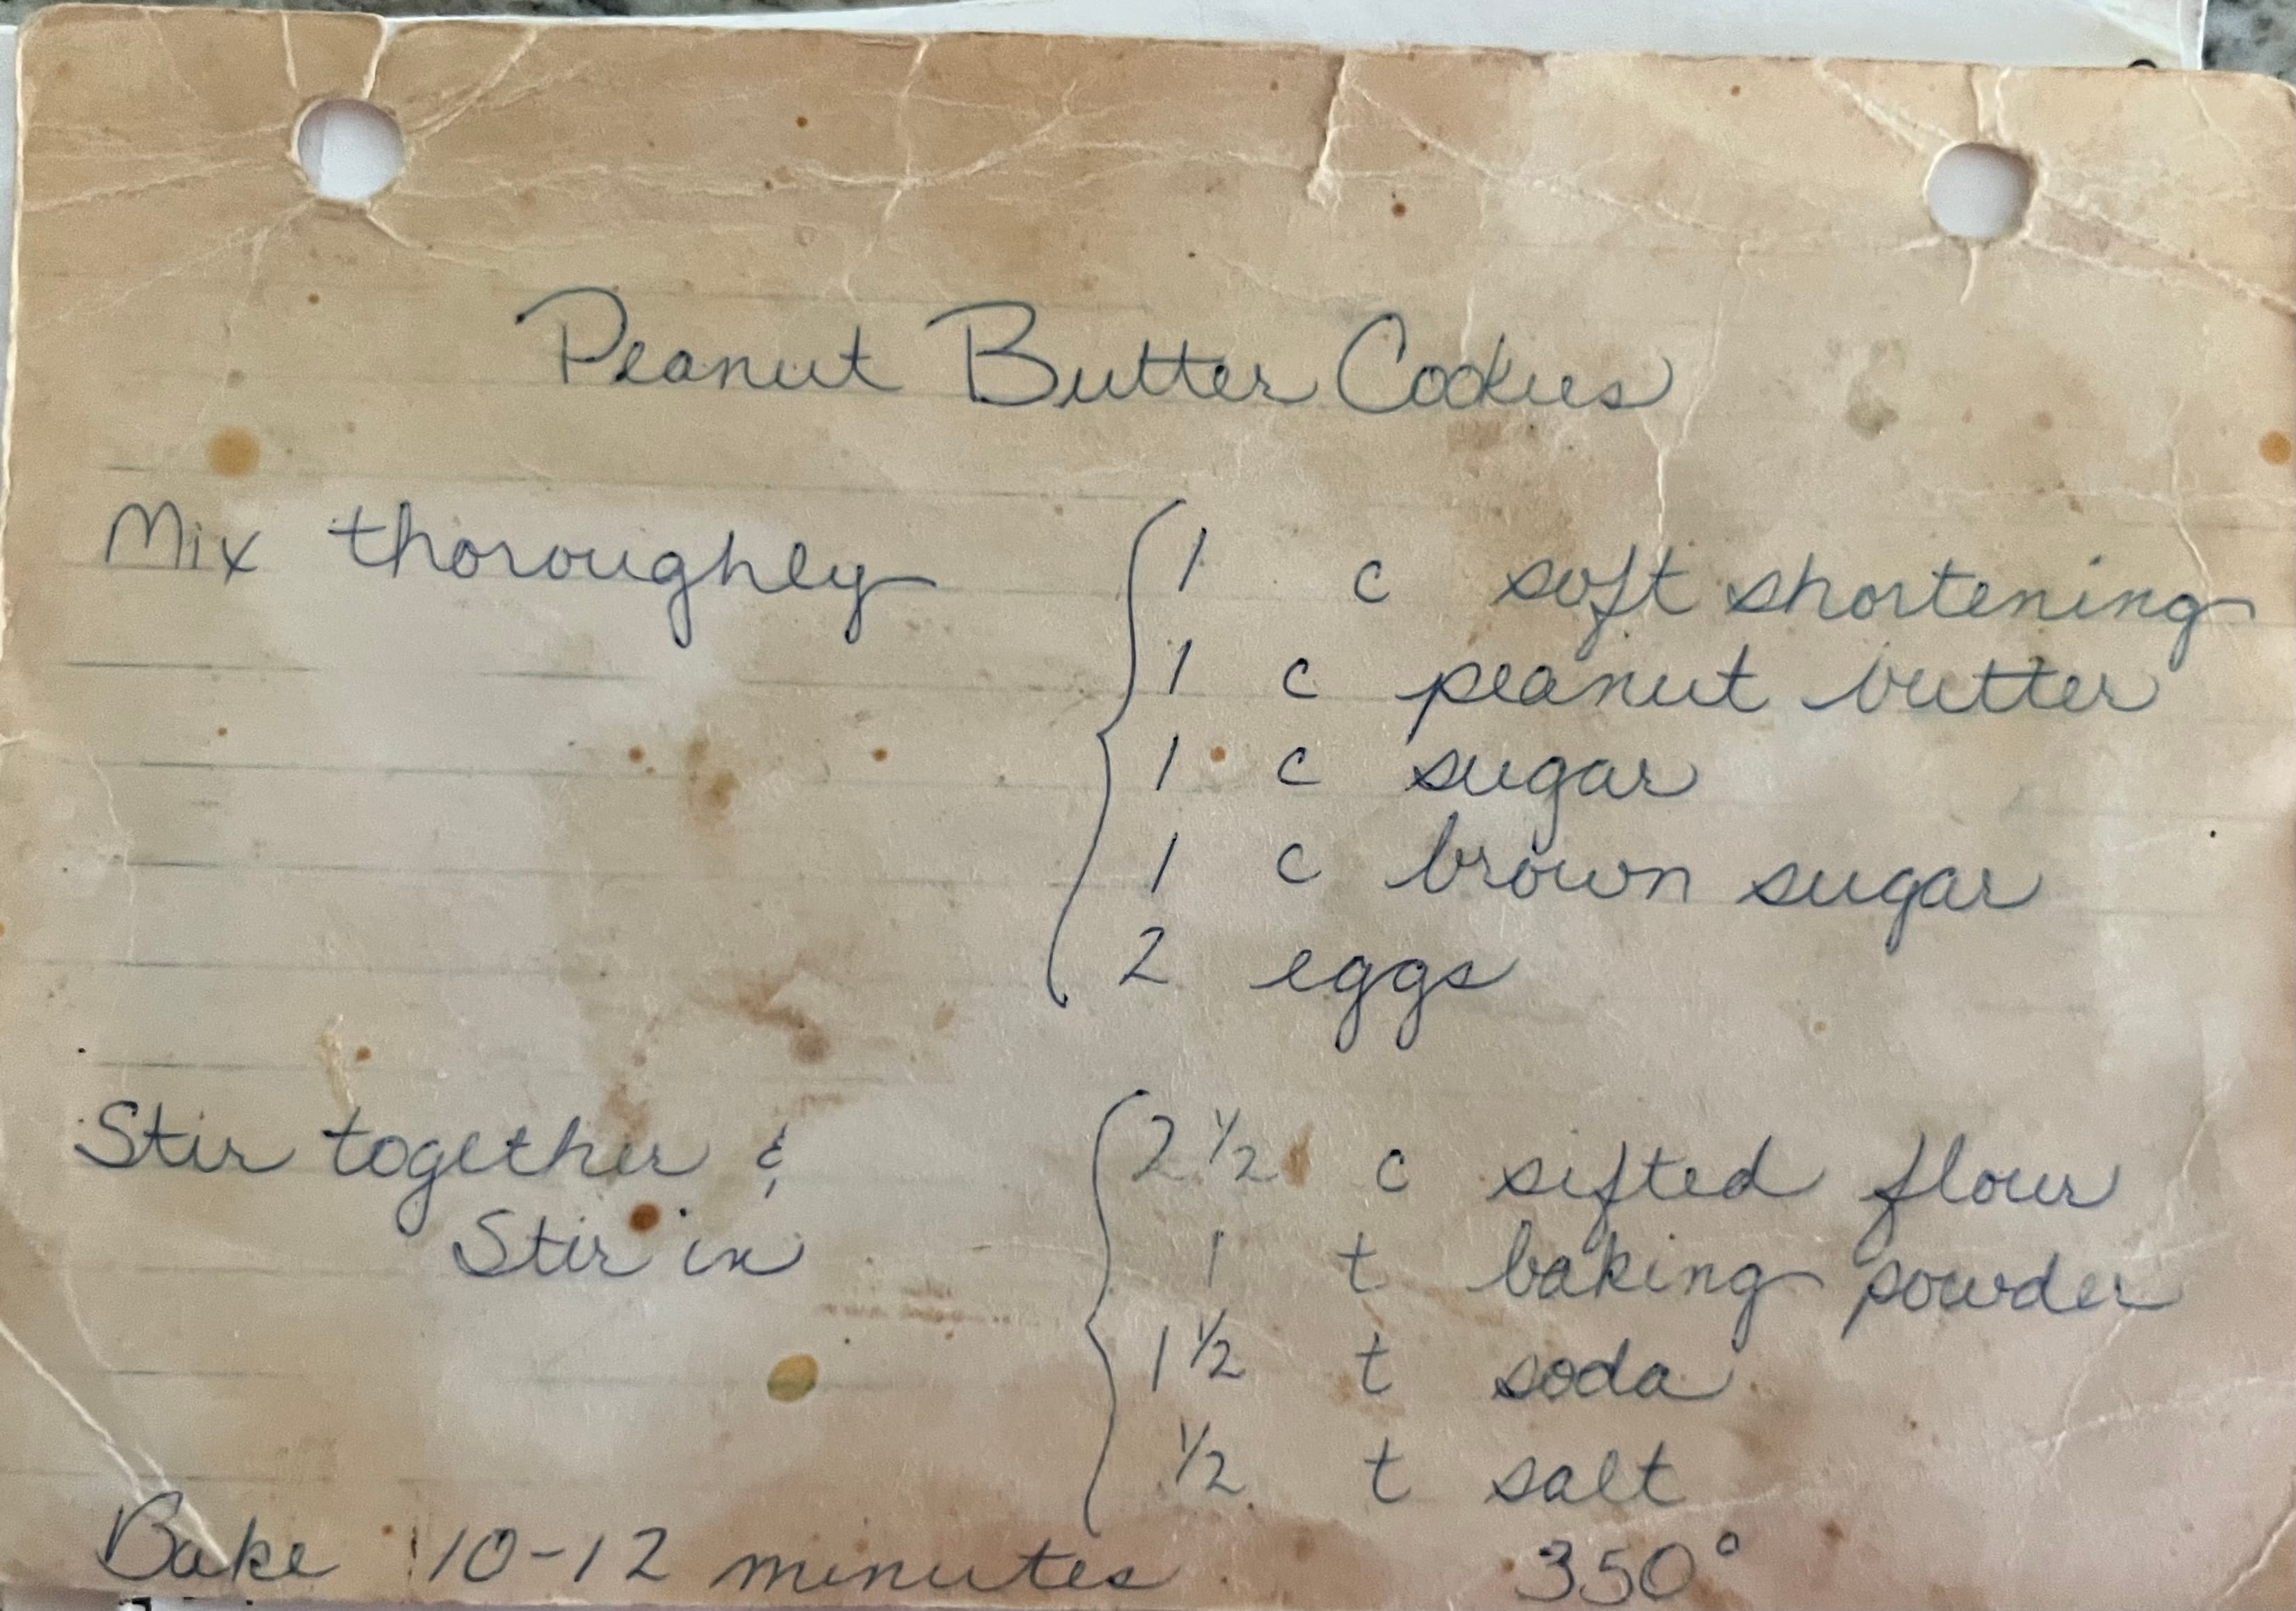 Peanut Butter Cookies
Mix thoroughly
1 c soft shortening
1 c peanut butter
1 c sugar
1 c brown sugar
2 eggs
Stir together &
Stir in
2 1/2 c sifted flour
1 t baking powder
1 1/2 t soda
1/2 t salt
Bake 10-12 minutes 350°